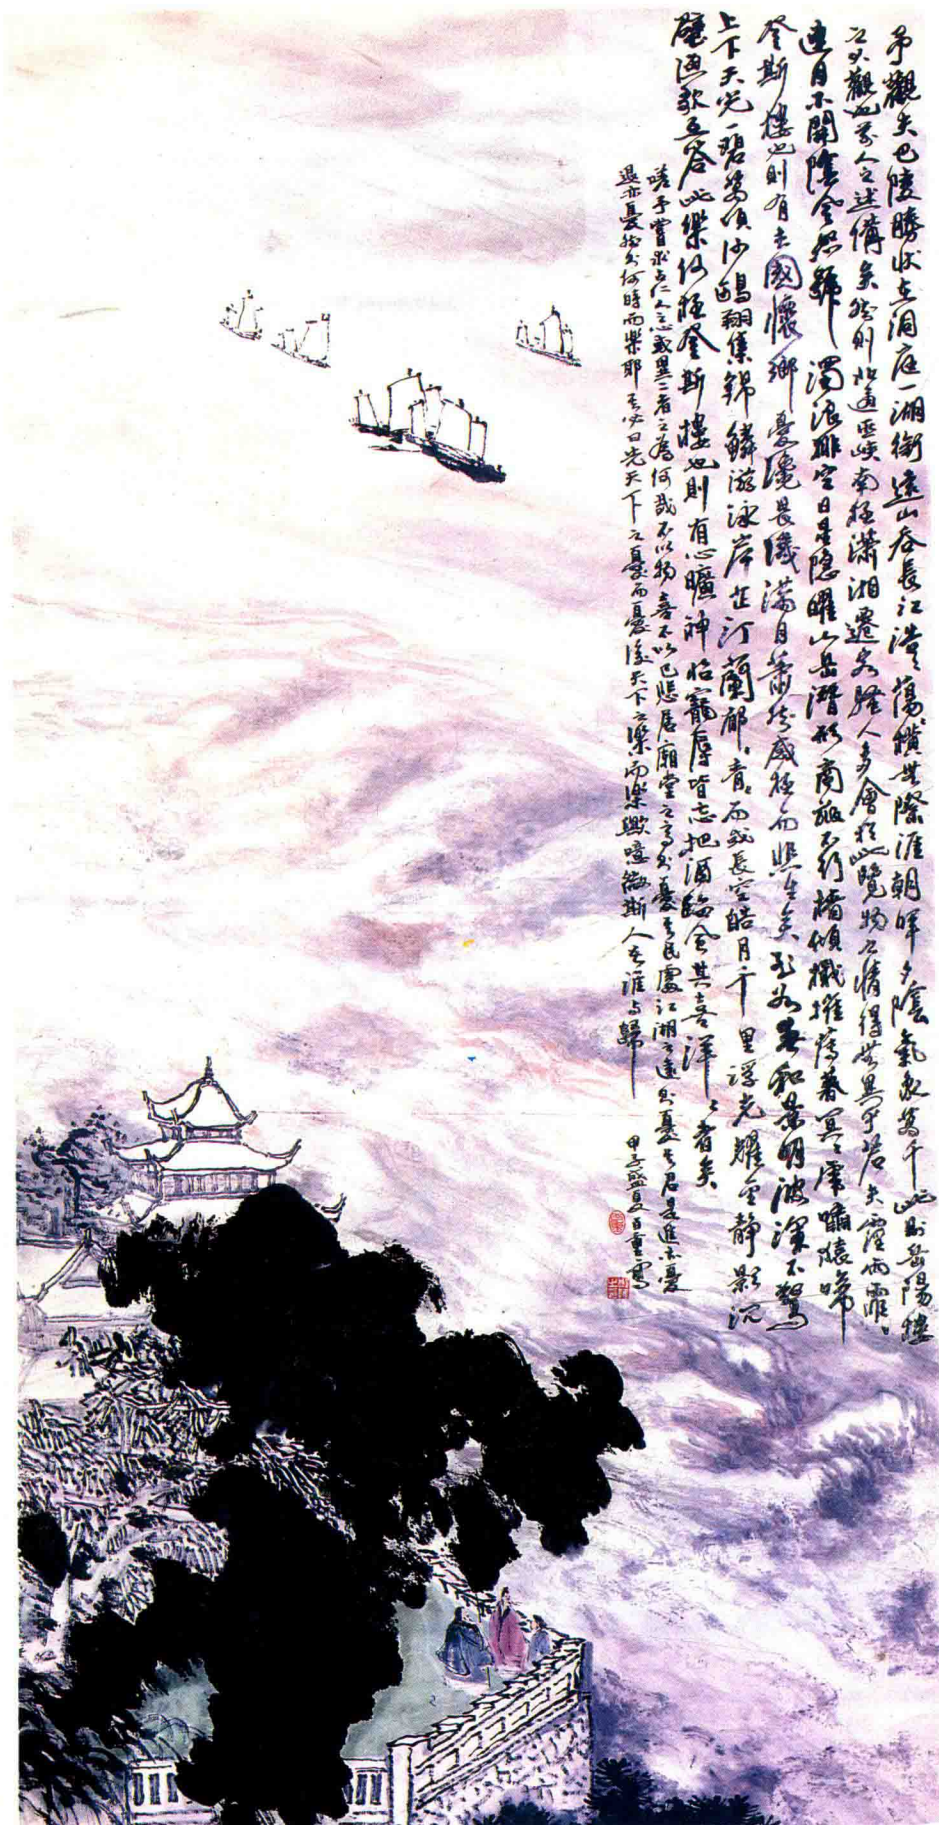 予觀夫巴陵勝狀在洞庭一湖銜遠山吞長江浩〻蕩〻橫無際涯朝暉夕陰氣象萬千此則岳陽樓
之大觀也前人之述備矣然則北通巫峽南極瀟湘遷客騷人多會於此覽物之情得無異乎若夫霪雨霏〻
連月不開陰風怒號濁浪排空日星隱曜山岳潛形商旅不行檣傾檝摧薄暮冥〻虎嘯猿啼
登斯樓也則有去國懷鄉憂讒畏譏滿目蕭然感極而悲生矣至若春和景明波瀾不驚
上下天光一碧萬頃沙鷗翔集錦鱗游泳岸芷汀蘭郁〻青〻而或長空皓月千里浮光耀金靜影沉
璧漁歌互答此樂何極登斯樓也則有心曠神怡寵辱皆忘把酒臨風其喜洋〻者矣
嗟予嘗求古仁人之心或異二者之為何哉不以物喜不以己悲居廟堂之高則憂其民處江湖之遠則憂其君是進亦憂
退亦憂然則何時而樂耶其必曰先天下之憂而憂後天下之樂而樂歟噫微斯人吾誰與歸
甲子盛夏百重寫